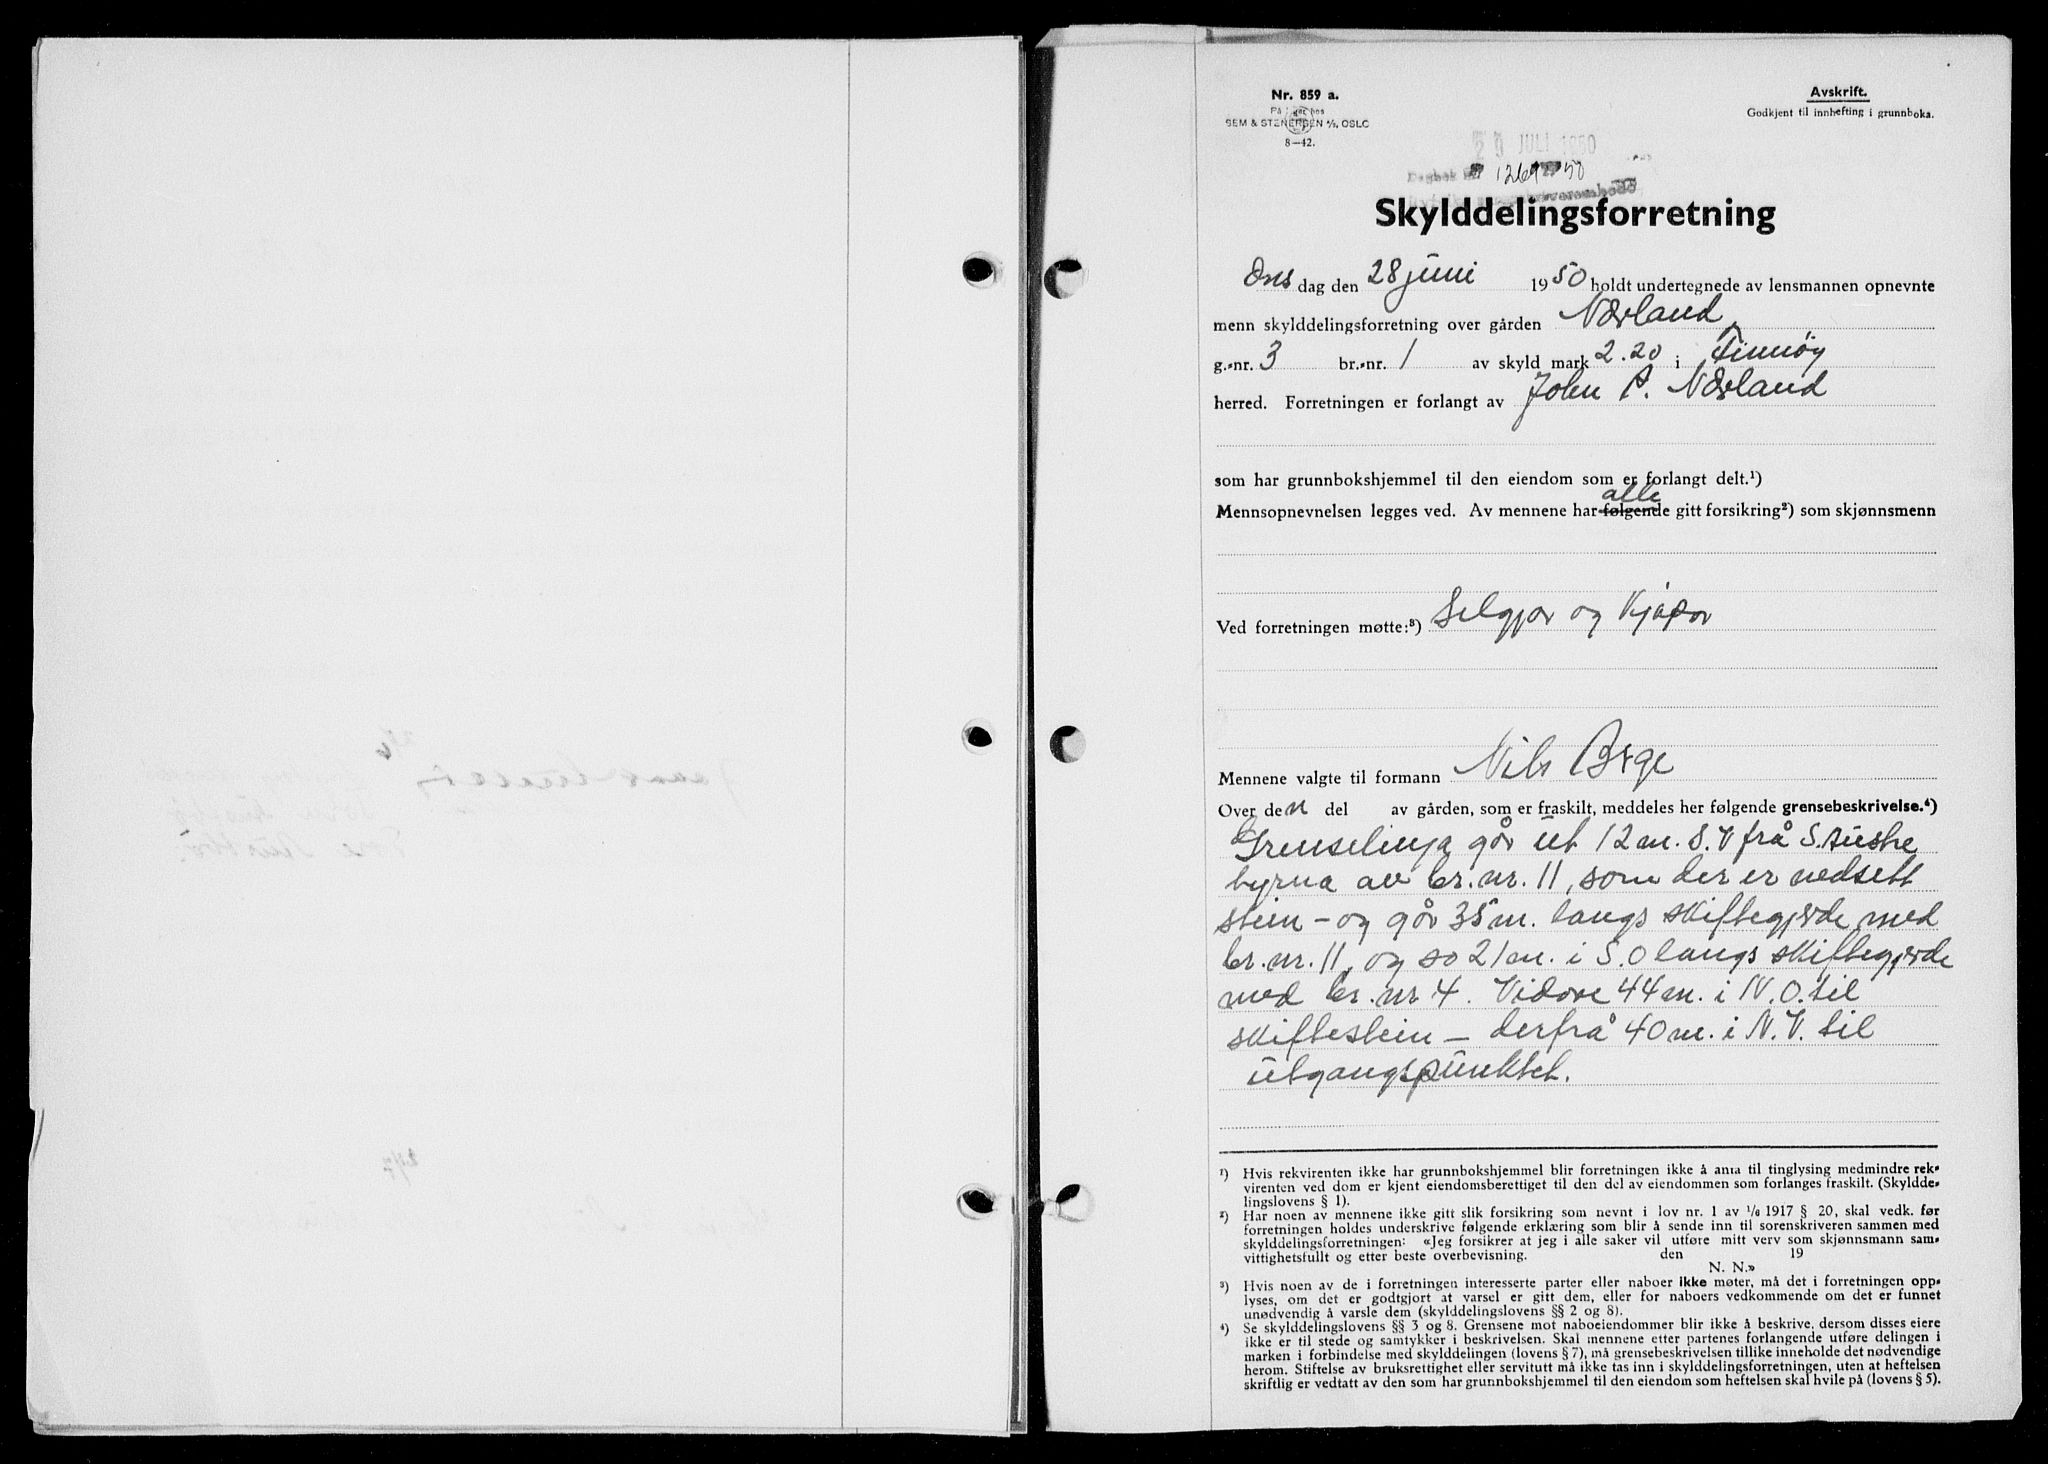 Nr. 859 a.
På lager hos
SEM & STENERSEN A/S, OSLO
8—42.
Avskrift.
Godkjent til innhefting i grunnboka.
29 JULI 1950
Dagbok 1269 50
Skylddelingsforretning
Ons dag den 28 juni 1950 holdt undertegnede av lensmannen opnevnte
menn skylddelingsforretning over gården Nærland
g.-nr. 3 br.-nr. 1 av skyld mark 2.20 i Finnøy
herred. Forretningen er forlangt av John A. Nærland
som har grunnbokshjemmel til den eiendom som er forlangt delt.¹)
alle
Mennsopnevnelsen legges ved. Av mennene har følgende gitt forsikring²) som skjønnsmenn
Ved forretningen møtte:³) Selgjar og Kjøpar
Mennene valgte til formann Nils Berge
Over den del av gården, som er fraskilt, meddeles her følgende grensebeskrivelse.⁴)
Grenselinja går ut 12 m. S.V frå S. austre
byrna av br. nr. 11, som der er nedsett
stein – og går 35 m. langs skiftegjerde med
br. nr. 11, og so 21 m. i S.O langs skiftegjerde
med br. nr 4. Vidare 44 m. i N.O. til
skiftestein – derfrå 40 m. i N.V. til
utgangspunktet.
¹) Hvis rekvirenten ikke har grunnbokshjemmel blir forretningen ikke å anta til tinglysing medmindre rek-
virenten ved dom er kjent eiendomsberettiget til den del av eiendommen som forlanges fraskilt. (Skyldde-
lingslovens § 1).
²) Har noen av mennene ikke gitt slik forsikring som nevnt i lov nr. 1 av 1/6 1917 § 20, skal vedk. før
forretningen holdes underskrive følgende erklæring som blir å sende inn til sorenskriveren sammen med
skylddelingsforretningen: «Jeg forsikrer at jeg i alle saker vil utføre mitt verv som skjønnsmann sam-
vittighetsfullt og etter beste overbevisning. den 19
N. N.»
³) Hvis noen av de i forretningen interesserte parter eller naboer ikke møter, må det i forretningen opp-
lyses, om det er godtgjort at varsel er gitt dem, eller for naboers vedkommende om det er funnet
unødvendig å varsle dem (skylddelingslovens §§ 2 og 8).
⁴) Se skylddelingslovens §§ 3 og 8. Grensene mot naboeiendommer blir ikke å beskrive, dersom disses eiere
ikke er til stede og samtykker i beskrivelsen. Skal mennene etter partenes forlangende utføre delingen i
marken i forbindelse med skylddelingen (lovens § 7), må grensebeskrivelsen tillike inneholde det nødvendige
herom. Stiftelse av bruksrettighet eller servitutt må ikke tas inn i skylddelingsforretningen, uten at heftelsen
skriftlig er vedtatt av den som har grunnbokshjemmel til den eiendom som heftelsen skal hvile på (lovens § 5).